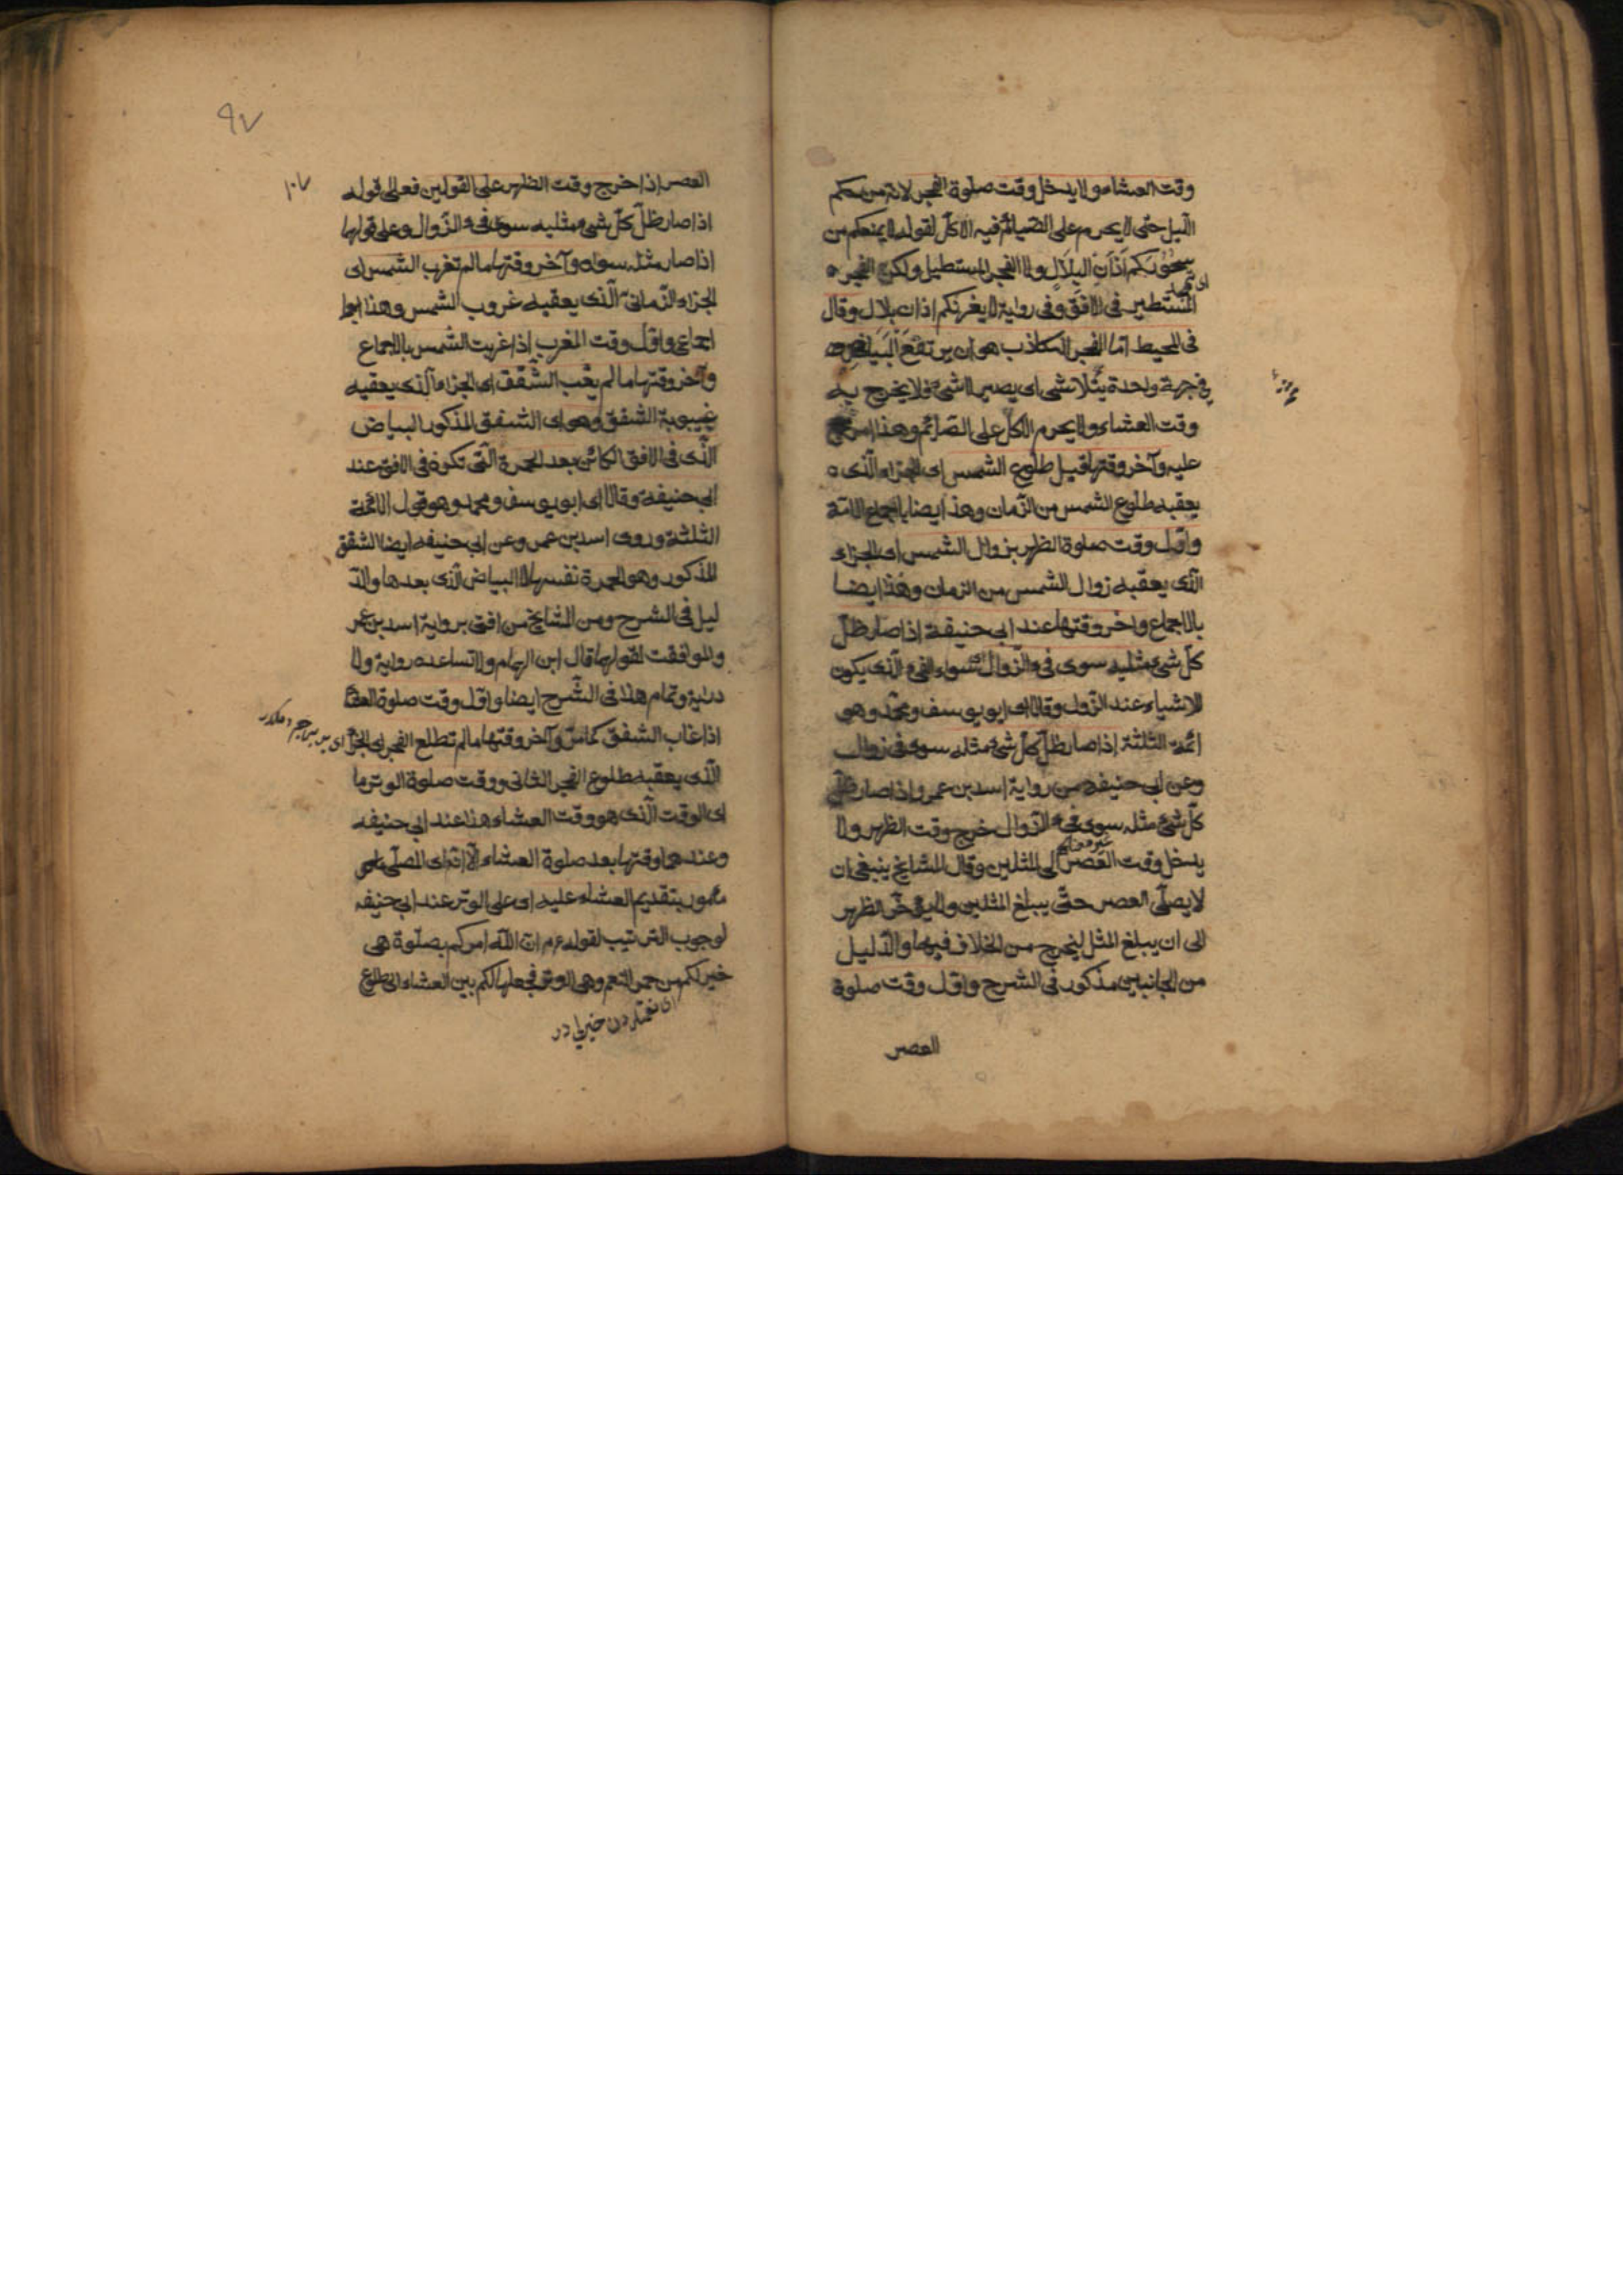 وقت العشاء ولا يدخل وقت صلوة الفجر لانه من حكم
الليل حتى لا يحرم على الصيائم فيه الاكل لقوله لا يمنعكم من
سحوركم اذان البلال ولا الفجر المستطيل ولكن الفجر
المستطير فى الافق وفى رواية لا يغرنكم اذان بلال وقال
فى المحيط اما الفجر الكاذب هو ان يرتفع البياض
فى جهة واحدة يتلاشى اى يصير لا شىء فلا يخرج به
وقت العشاء ولا يحرم الاكل على الصائم وهذا
عليه وآخر وقتها قبيل طلوع الشمس اى الجزء الذى
يعقبه طلوع الشمس من الزمان وهذا ايضا باجماع الامة
واول وقت صلوة الظهر بزوال الشمس اى الجزء
الذى يعقبه زوال الشمس من الزمان وهذا ايضا
بالاجماع واخر وقتها عند ابى حنيفة اذا صار ظل
كل شىء مثليه سوى فىء الزوال اى سواء الفىء الذى يكون
للاشياء عند الزوال وقالا اى ابو يوسف ومحمد وهو
ائمة الثلثة اذا صار ظل كل شىء مثله سوى فىء زوال
وعن ابى حنيفه من رواية اسد بن عمر واذا صار ظل
كل شىء مثله سوى فىء الزوال خرج وقت الظهر ولا
يدخل وقت العصر الى المثلين وقال المشايخ ينبغى ان
لا يصلى العصر حتى يبلغ المثلين ولا يؤخر الظهر
الى ان يبلغ المثل ليخرج من الخلاف فيهما والدليل
من الجانبين مذكور فى الشرح واول وقت صلوة
العصر
٩٧
١٠٧
العصر اذا خرج وقت الظهر على القولين فعلى قوله
اذا صار ظل كل شىء مثليه سوى فىء الزوال وعلى قولهما
اذا صار مثله سواه وآخر وقتها ما لم تغرب الشمس اى
الجزء الزمانى الذى يعقبه غروب الشمس وهذا ايضا
اجماعى واول وقت المغرب اذا غربت الشمس بالاجماع
وآخر وقتها ما لم يغب الشفق اى الجزء الذى يعقبه
غيبوبة الشفق وهو اى الشفق المذكور البياض
الذى فى الافق الكائن بعد الحمرة التى تكون فى الافق عند
ابى حنيفة وقالا اى ابو يوسف ومحمد وهو قول الائمة
الثلثة وروى اسد بن عمر وعن ابى حنيفه ايضا الشفق
المذكور وهو الحمرة نفسها لا البياض الذى بعدها والد
ليل فى الشرح ومن المشايخ من افتى برواية اسد بن عمر
والموافقت لقولهما قال ابن الهمام ولا تساعده رواية ولا
دراية وتمام هذا فى الشرح ايضا واول وقت صلوة العشا
اذا غاب الشفق كما مر وآخر وقتها ما لم تطلع الفجر اى الجزء
الذى يعقبه طلوع الفجر الثانى ووقت صلوة الوتر ما
اى الوقت الذى هو وقت العشاء هذا عند ابى حنيفه
وعندهما وقتها بعد صلوة العشاء الا انه اى المصلى
مأمور بتقديم العشاء عليه اى على الوتر عند ابى حنيفه
لوجوب الترتيب لقوله عم ان الله امركم بصلوة هى
خير لكم من حمر النعم وهى الوتر فجعلها لكم بين العشاء الى طلوع